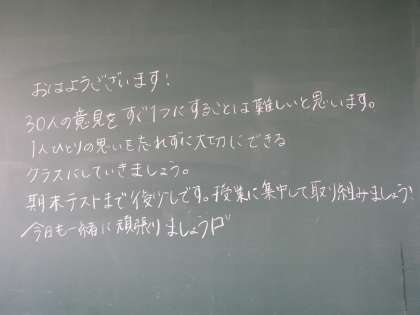 おはようございます!
30人の意見をすぐ1つにすることは難しいと思います。
1人ひとりの思いを忘れずに大切にできる
クラスにしていきましょう。
期末テストまで後少しです。授業に集中して取り組みましょう!
今日も一緒に頑張りましょう